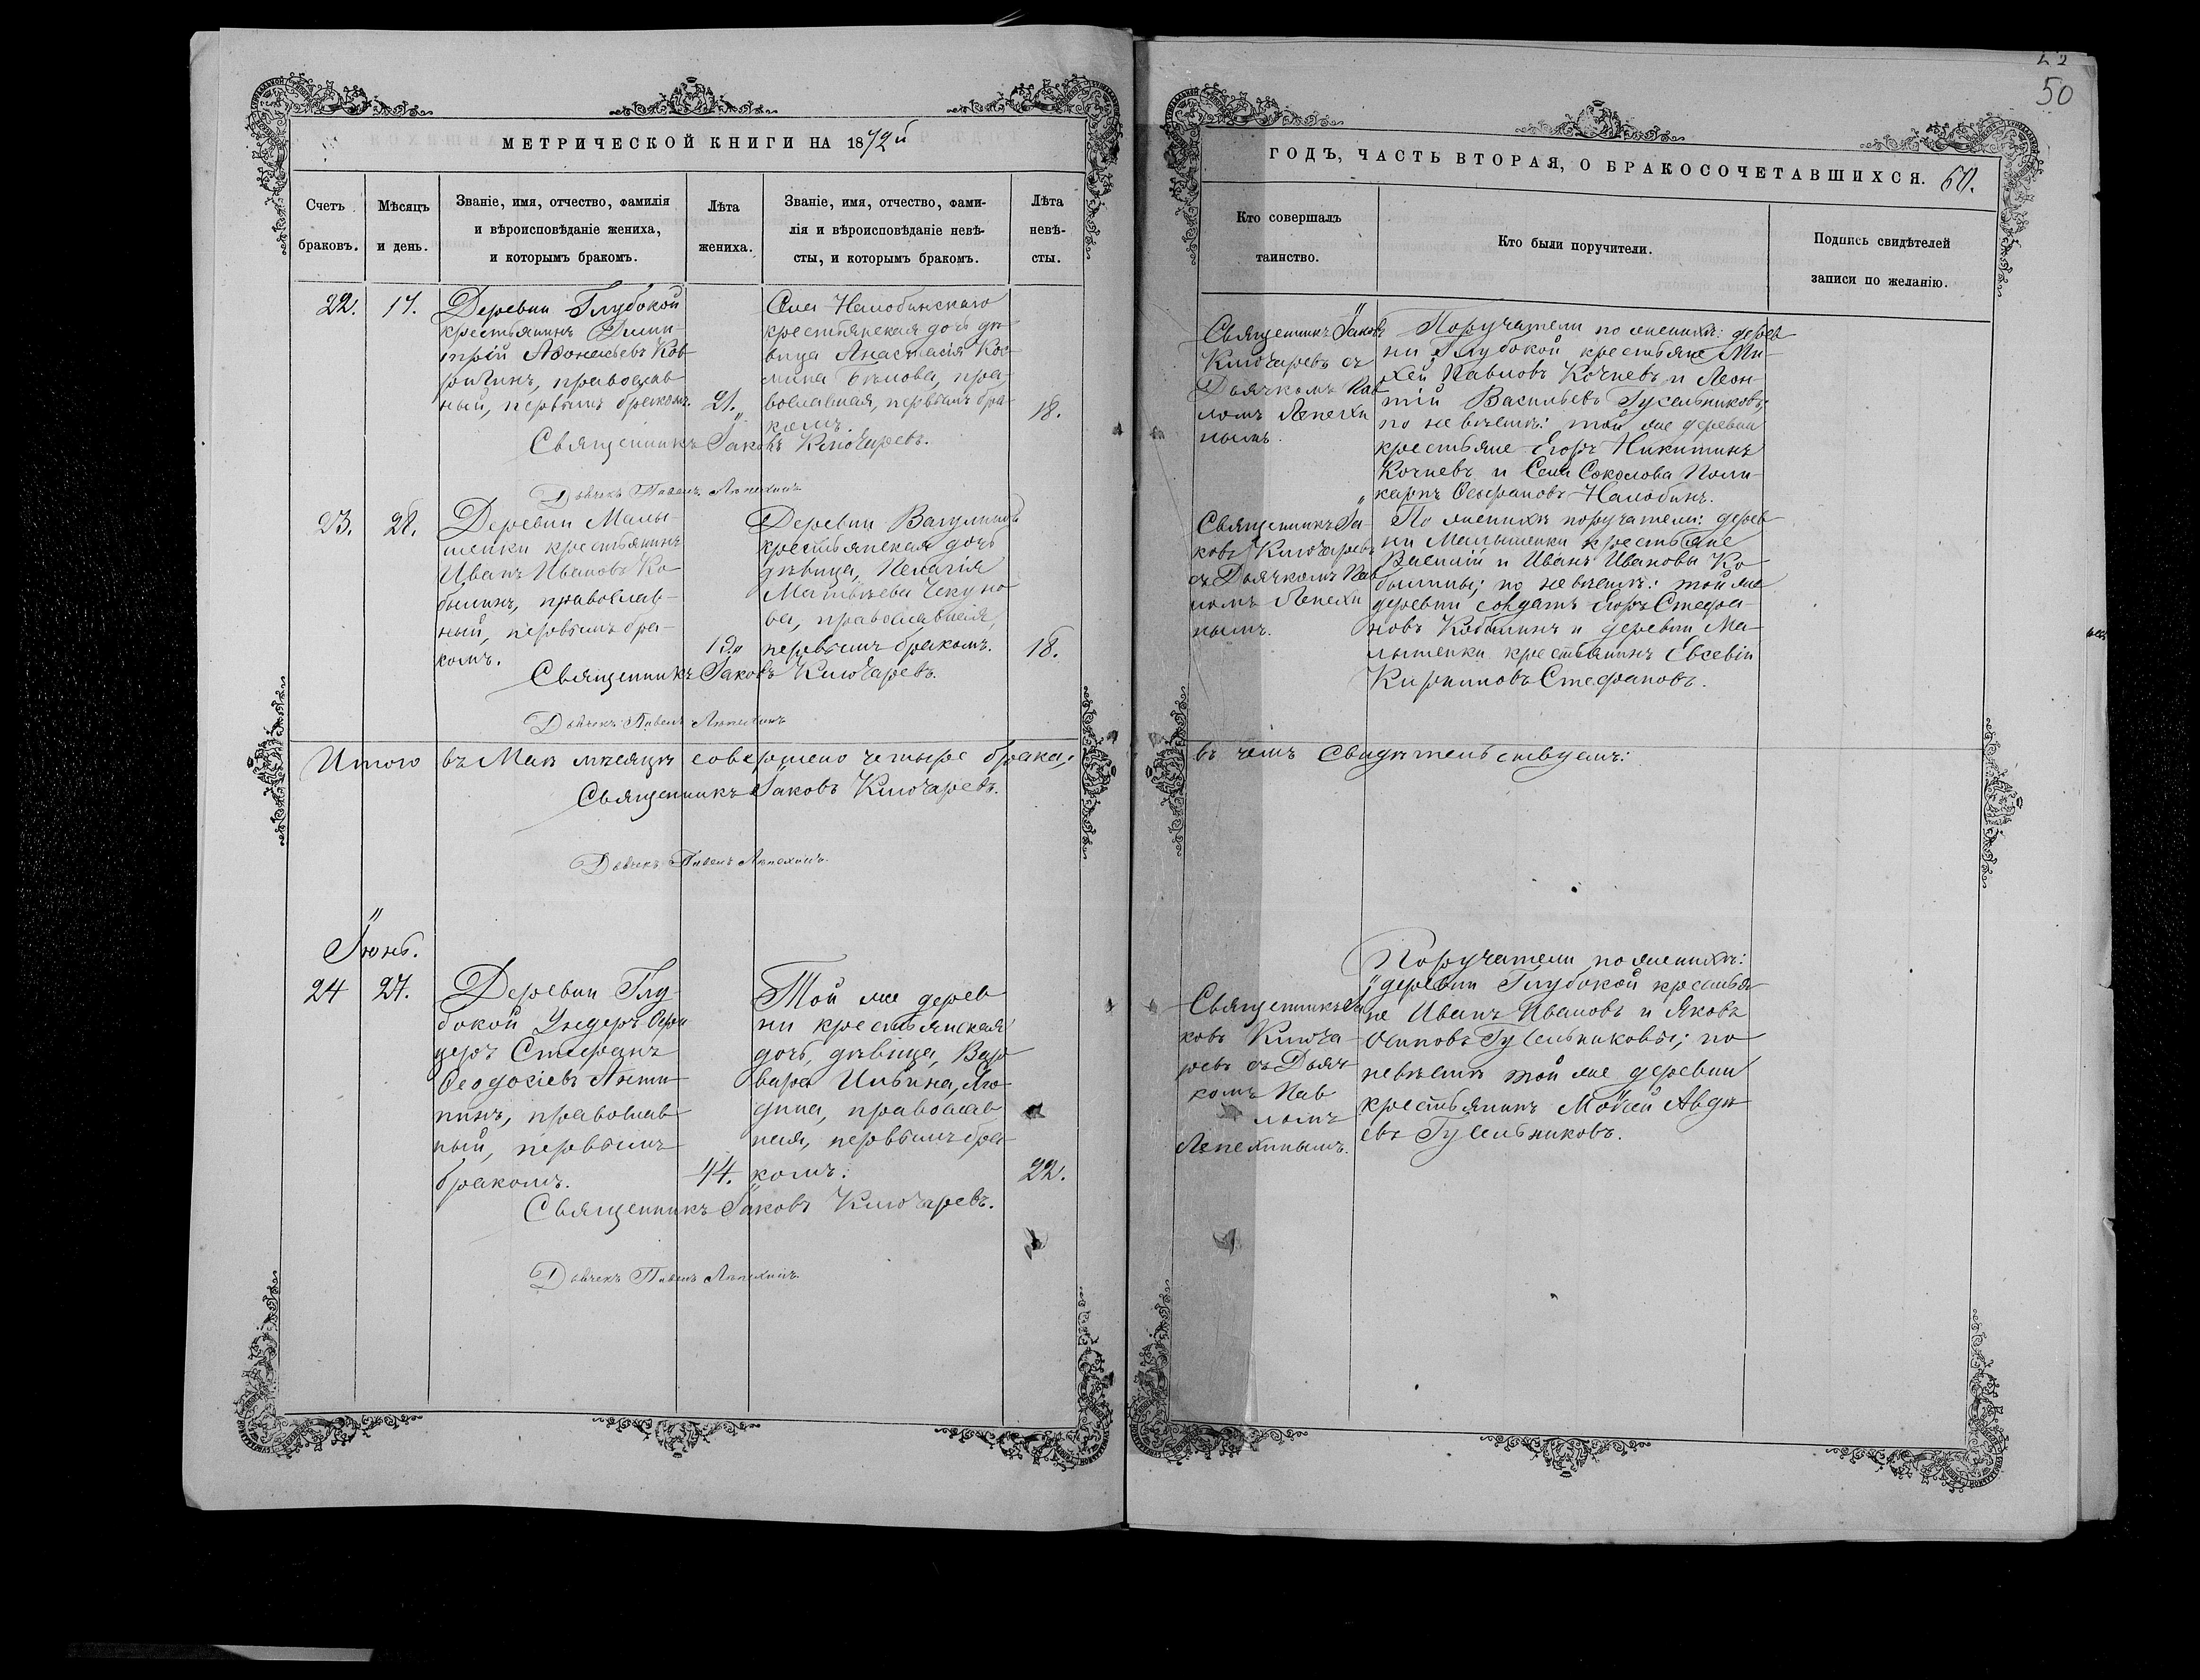 МЕТРИЧЕСКОЙ КНИГИ НА 1872й
Счетъ браковъ.
Мѣсяцъ и день.
Званіе, имя, отчество, фамилія
и вѣроисповѣданіе жениха,
и которымъ бракомъ.
Лѣта жениха.
Званіе, имя, отчество, фами-
лія и вѣроисповѣданіе невѣ-
сты, и которымъ бракомъ.
Лѣта
невѣ-
сты.
22.
17.
Деревни Глубокой
крестьянинъ Дмит-
трій
православ
ный, первымъ бракомъ.
21.
Села Налобинскаго
крестьянская дочь дѣ
вица Анастасія Кос-
мина Бѣлова, пра-
вославная, первымъ бра-
комъ.
18.
Священникъ Іаковъ Ключаревъ.
Дьячекъ Павелъ Лепехинъ
23.
28.
Деревни Малы-
шенки крестьянинъ
Иванъ Ивановъ Ко-
былинъ, православ-
ный, первымъ бра-
комъ.
19.
Деревни
крестьянская дочь
дѣвица, Пелагія
Матвѣева Чекуно
ва, православная,
первымъ бракомъ.
18.
Священникъ Іаковъ Ключаревъ.
Дьячекъ Павелъ Лепехинъ
Итого въ Маѣ мѣсяцѣ совершено четыре брака;
Священникъ Іаковъ Ключаревъ.
Дьячекъ Павелъ Лепехинъ.
Іюнь.
24
27.
Деревни Глу-
бокой Ундеръ Офи
церъ Стефанъ
Ѳеодосіевъ
православ-
ный, первымъ
бракомъ.
44.
Той же дерев
ни крестьянская
дочь, дѣвица, Вар-
вара Ильина,
православ
ная, первымъ бра-
комъ.
22.
Священникъ Іаковъ Ключаревъ.
Дьячекъ Павелъ Лепехинъ.
50
ГОДЪ, ЧАСТЬ ВТОРАЯ, О БРАКОСОЧЕТАВШИХСЯ. 60.
Кто совершалъ
таинство.
Кто были поручители.
Подпись свидѣтелей
записи по желанію.
Священникъ Іаковъ
Ключаревъ съ
Дьячкомъ Пав
ломъ Лепехи
нымъ.
Поручатели по женихѣ: дерев
ни Глубокой крестьяне Ми-
хей Павловъ Кочневъ и Леон-
тій Васильевъ Гусельниковъ;
по невѣстѣ: той же деревни
крестьяне Егоръ Никитинъ
Кочневъ и Села Соколова Поли-
карпъ Налобинъ.
Священникъ Іа-
ковъ Ключаревъ
съ Дьячкомъ Пав
ломъ Лепехи
нымъ.
По женихѣ поручатели: дерев
ни Малышенки крестьяне
Василій и Иванъ Ивановы Ко-
былины; по невѣстѣ: той же
деревни солдатъ Егоръ Стефа-
новъ Кобылинъ и деревни Ма-
лышенки крестьянинъ Евсевій
Стефановъ.
въ чемъ свидѣтельствуемъ:
Священникъ Іа
ковъ Ключа-
ревъ съ Дьяч-
комъ Пав
ломъ
Лепехинымъ.
Поручатели по женихѣ:
деревни Глубокой крестья-
не Иванъ Ивановъ и Яковъ
Осиповъ Гусельниковы; по
невѣстѣ той же деревни
крестьянинъ Мокей Авдѣ-
евъ Гусельниковъ.